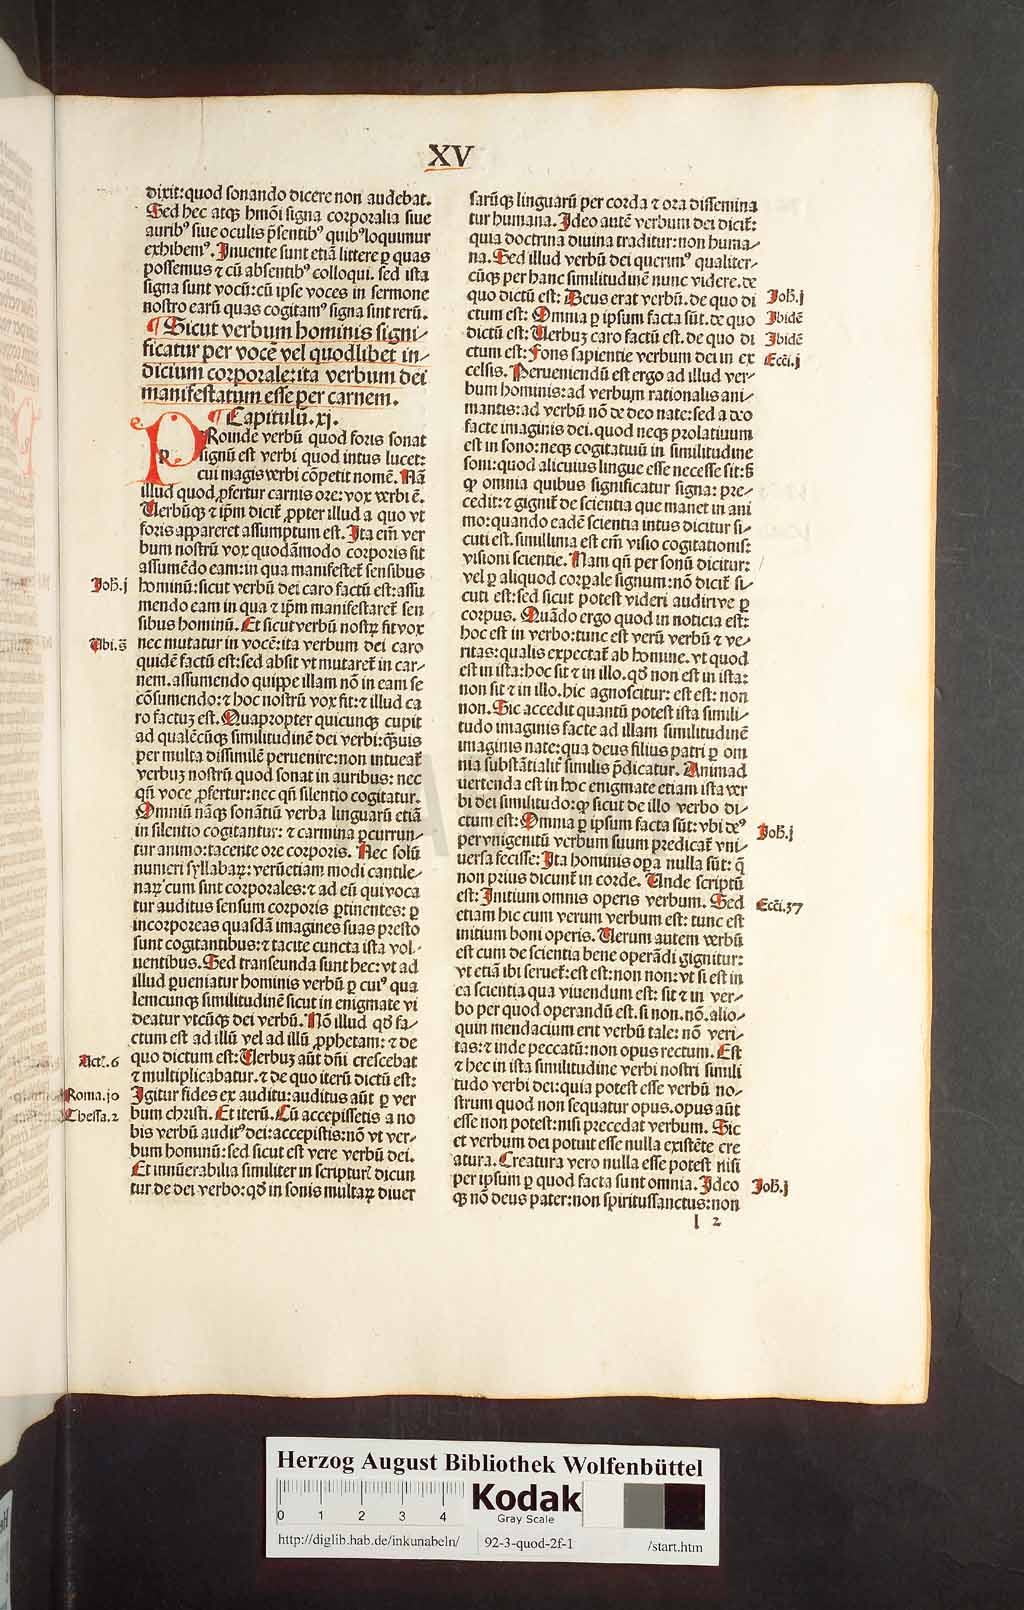 XV
dixit:quod sonando dicere non audebat.
Sed hec atqꝫ hmōi signa corporalia siue
auribꝰ siue oculis p̄sentibꝰ quibꝰ loquimur
exhibemꝰ. Inuente sunt etiā littere ꝑ quas
possemus ⁊ cū absentibꝰ colloqui. sed ista
signa sunt vocū:cū ipse voces in sermone
nostro earū quas cogitamꝰ signa sint rerū.
¶ Sicut verbum hominis signi⸗
ficatur per vocē vel quodlibet in⸗
dicium corporale:ita verbum dei
manifestatum esse per carnem.
¶ Capitulū. xj.
PRoinde verbū quod foris sonat
signū est verbi quod intus lucet:
cui magis verbi cōpetit nomē. Nā
illud quod ꝓfertur carnis ore: vox verbi ē.
Verbūqꝫ ⁊ ip̄m dicit᷑ ꝓpter illud a quo vt
foris appareret assumptum est. Ita em̄ ver
bum nostrū vox quodāmodo corporis fit
assumēdo eam: in qua manifestet᷑ sensibus
Joh̄. j
hominū: sicut verbū dei caro factū est: assu
mendo eam in qua ⁊ ip̄m manifestaret᷑ sen
sibus hominū. Et sicut verbū nostꝝ fit vox
Vbi. s̄
nec mutatur in vocē: ita verbum dei caro
quidē factū est: sed absit vt mutaret᷑ in car⸗
nem. assumendo quippe illam nō in eam se
cōsumendo: ⁊ hoc nostrū vox fit: ⁊ illud ca
ro factuꝫ est. Quapropter quicunqꝫ cupit
ad qualēcūqꝫ similitudinē dei verbi: q̄uis
per multa dissimilē peruenire: non intueat᷑
verbuꝫ nostrū quod sonat in auribus: nec
qn̄ voce ꝓfertur: nec qn̄ silentio cogitatur.
Omniū nāqꝫ sonātiū verba linguarū etiā
in silentio cogitantur: ⁊ carmina ꝑcurrun⸗
tur animo: tacente ore corporis. Nec solū
numeri syllabaꝝ: verū etiam modi cantile⸗
naꝝ cum sint corporales: ⁊ ad eū qui voca
tur auditus sensum corporis ꝑtinentes: ꝑ
incorporeas quasdā imagines suas presto
sunt cogitantibus: ⁊ tacite cuncta ista vol⸗
uentibus. Sed transeunda sunt hec: vt ad
illud ꝑueniatur hominis verbū ꝑ cuiꝰ qua
lemcunqꝫ similitudinē sicut in enigmate vi
deatur vtcūqꝫ dei verbū. Nō illud qd̄ fa⸗
ctum est ad illū vel ad illū ꝓphetam: ⁊ de
Act᷑. 6
quo dictum est: Verbuꝫ aūt dn̄i crescebat
⁊ multiplicabatur. ⁊ de quo iterū dictū est:
Roma. jo
Igitur fides ex auditu: auditus aūt ꝑ ver
Thessa. 2
bum christi. Et iterū. Cū accepissetis a no
bis verbū auditꝰ dei: accepistis: nō vt ver⸗
bum hominū: sed sicut est vere verbū dei.
Et innūerabilia similiter in scriptur᷑ dicun
tur de dei verbo: qd̄ in sonis multaꝝ diuer
sarūqꝫ linguarū per corda ⁊ ora dissemina
tur humana. Ideo autē verbum dei dicit᷑:
quia doctrina diuina traditur: non huma⸗
na. Sed illud verbū dei querimꝰ qualiter⸗
cūqꝫ per hanc similitudinē nunc videre. de
quo dictū est: Deus erat verbū. de quo di
Joh̄. j
ctum est: Omnia ꝑ ipsum facta sūt. de quo
Ibidē
dictū est: Verbuꝫ caro factū est. de quo di
Ibidē
ctum est: Fons sapientie verbum dei in ex
Ecci. j
celsis. Perueniendū est ergo ad illud ver⸗
bum hominis: ad verbum rationalis ani⸗
mantis: ad verbū nō de deo nate: sed a deo
facte imaginis dei. quod neqꝫ prolatiuum
est in sono: neqꝫ cogitatiuū in similitudine
soni: quod alicuius lingue esse necesse sit: s̄
qꝫ omnia quibus significatur signa: pre⸗
cedit: ⁊ gignit᷑ de scientia que manet in ani
mo: quando eadē scientia intus dicitur si⸗
cuti est. simillima est em̄ visio cogitationis:
visioni scientie. Nam qn̄ per sonū dicitur:
vel ꝑ aliquod corꝑale signum: nō dicit᷑ si⸗
cuti est: sed sicut potest videri audirive ꝑ
corpus. Quādo ergo quod in noticia est:
hoc est in verbo: tunc est verū verbū ⁊ ve⸗
ritas: qualis expectat᷑ ab homine. vt quod
est in ista: hoc sit ⁊ in illo. qd̄ non est in ista:
non sit ⁊ in illo. hic agnoscitur: est est: non
non. Sic accedit quantū potest ista simili⸗
tudo imaginis facte ad illam similitudinē
imaginis nate: qua deus filius patri ꝑ om
nia substātialit᷑ similis p̄dicatur. Animad
uertenda est in hoc enigmate etiam ista ver
bi dei similitudo: qꝫ sicut de illo verbo di⸗
ctum est: Omnia ꝑ ipsum facta sūt: vbi deꝰ
Joh̄. j
per vnigenitū verbum suum predicat᷑ vni⸗
uersa fecisse: Ita hominis oꝑa nulla sūt: q̄
non prius dicunt᷑ in corde. Vnde scriptū
est: Initium omnis operis verbum. Sed
Ecci. 37
etiam hic cum verum verbum est: tunc est
initium boni operis. Verum autem verbū
est cum de scientia bene operādi gignitur:
vt etiā ibi seruet᷑: est est: non non: vt si est in
ea scientia qua viuendum est: sit ⁊ in ver⸗
bo per quod operandū est. si non. nō. alio⸗
quin mendacium erit verbū tale: nō veri⸗
tas: ⁊ inde peccatū: non opus rectum. Est
⁊ hec in ista similitudine verbi nostri simili
tudo verbi dei: quia potest esse verbū no⸗
strum quod non sequatur opus. opus aūt
esse non potest: nisi precedat verbum. Sic
et verbum dei potuit esse nulla existēte cre
atura. Creatura vero nulla esse potest nisi
per ipsum ꝑ quod facta sunt omnia. Ideo
Joh̄. j
qꝫ nō deus pater: non spiritussanctus: non
l 2
Herzog August Bibliothek Wolfenbüttel
0 1 2 3 4
Kodak
Gray Scale
http://diglib.hab.de/inkunabeln/ 92-3-quod-2f-1 /start.htm